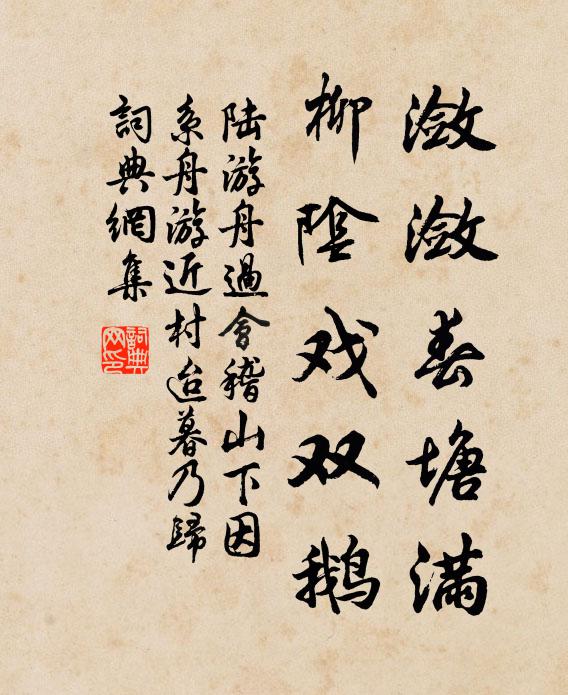 潋潋春塘满
柳阴戏双鹅
陆游舟過會稽山下因
系舟游近村迨暮乃歸
詞典網集
詞典网印